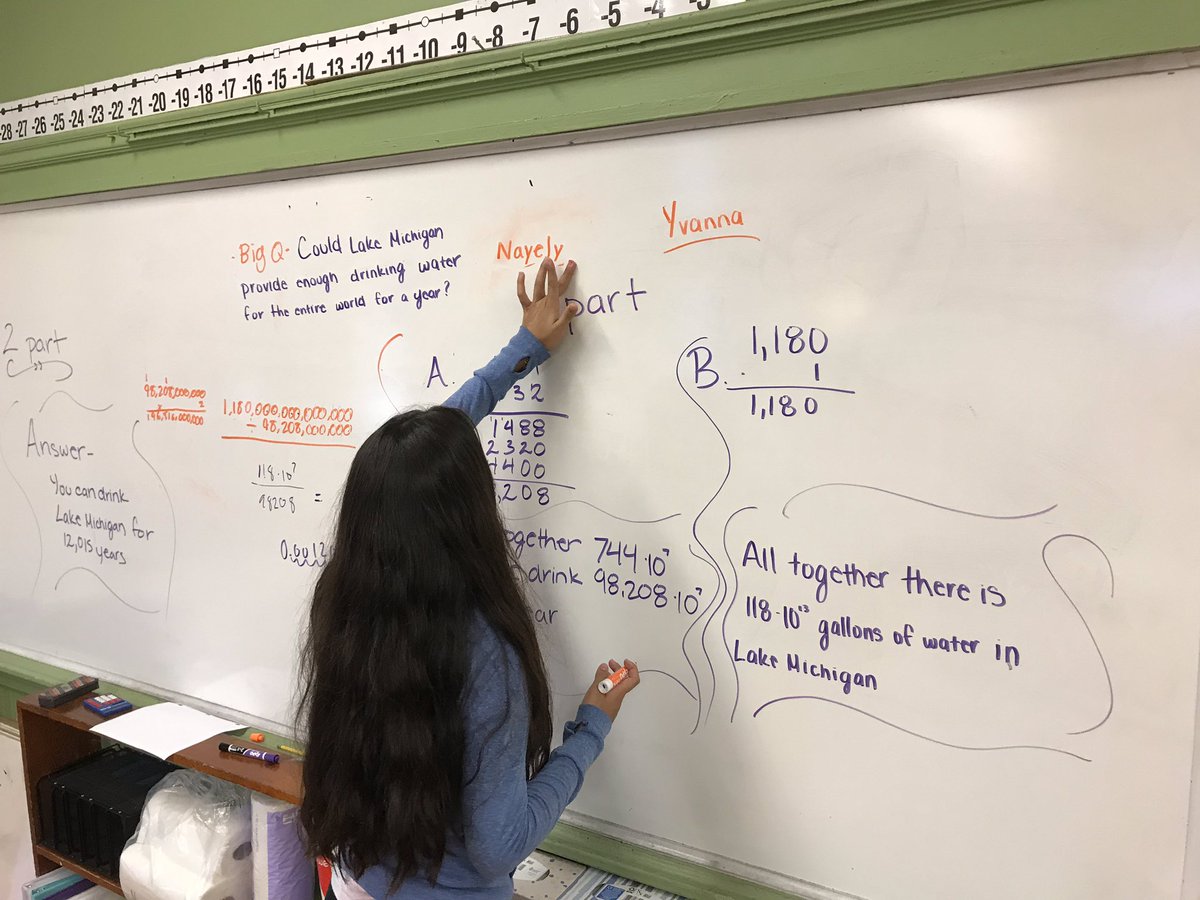 -28 -27 -26 -25 -24 -23 -22 -21 -20 -19 -18 -17 -16 -15 -14 -13 -12 -11 -10 -9 -8 -7 -6 -5 -4
Big Q- Could Lake Michigan
provide enough drinking water
for the entire world for a year?
Nayely
Yvanna
2 part
Answer-
You can drink
Lake Michigan for
12,015 years
98,208,000,000
2
1,180,000,000,000,000
÷ 98,208,000,000
118·10⁷
98208 =
part
A.
32
1488
2320
4400
,208
ogether 744·10⁷
drink 98,208·10⁷
ear
B.
1,180
1
1,180
All together there is
118·10¹³ gallons of water in
Lake Michigan